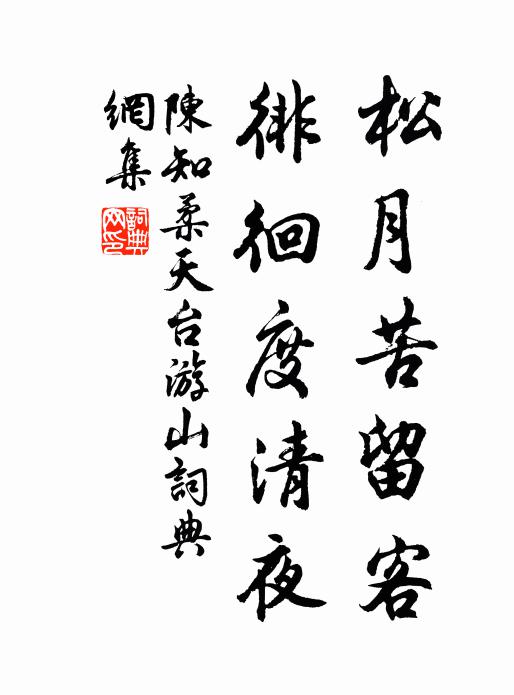 松月苦留客
徘徊度清夜
陳知柔天台游山詞典
網集
詞典
网印